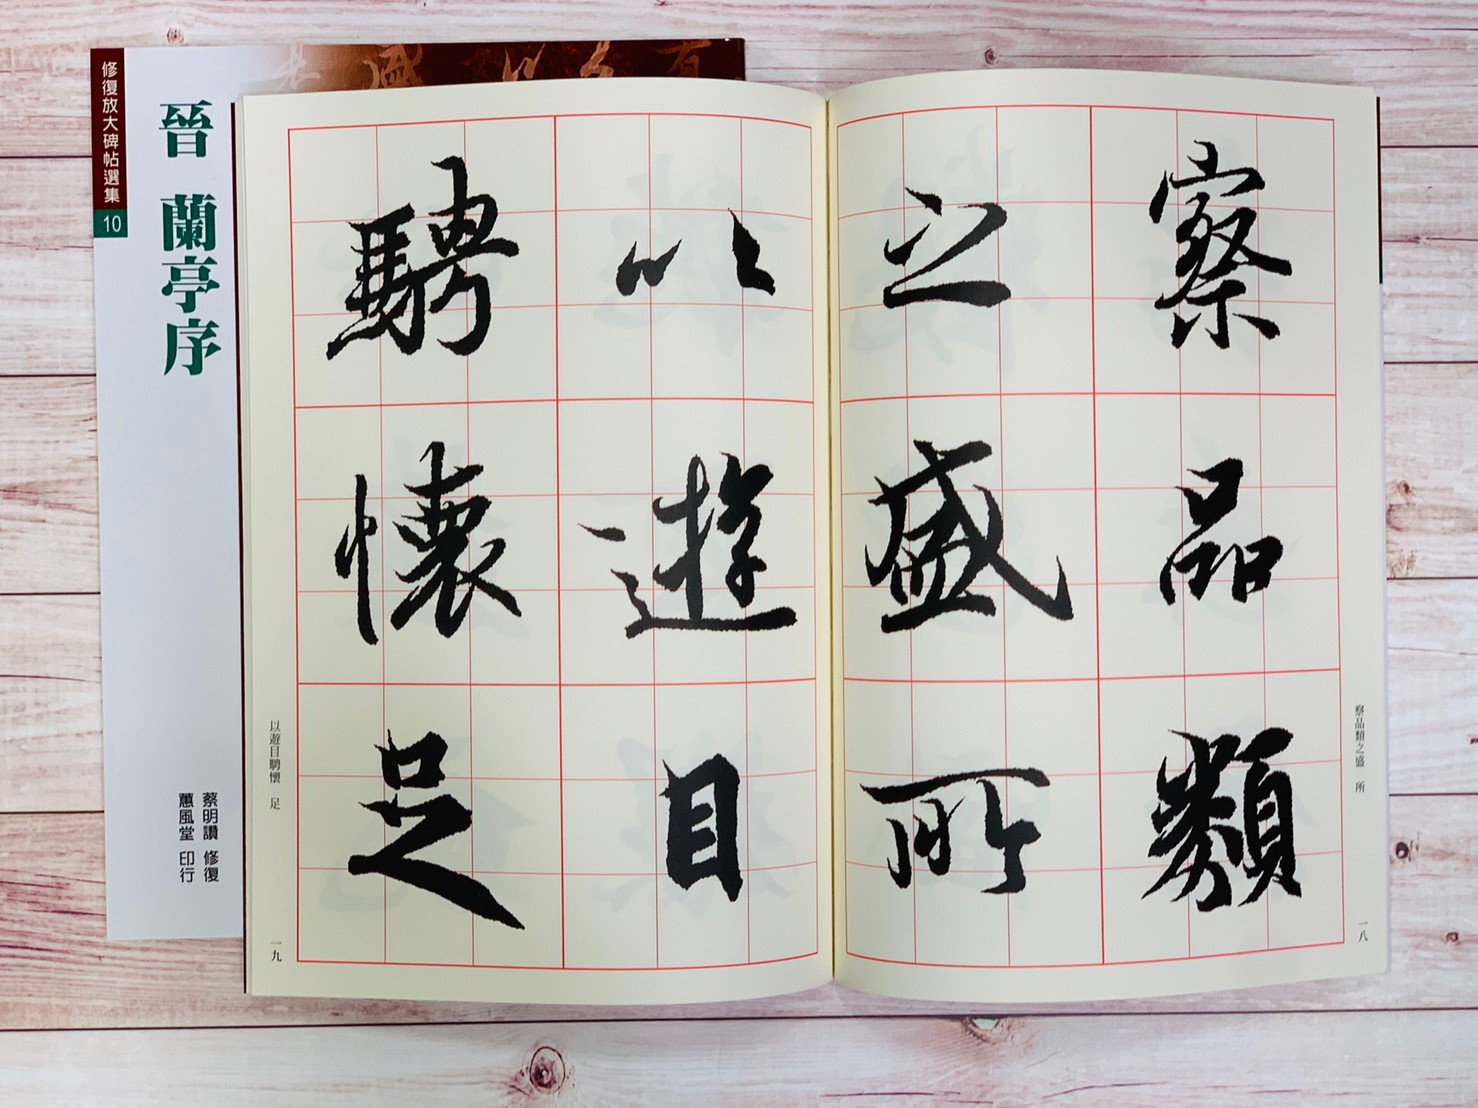 修復放大碑帖選集
10
晉 蘭亭序
蔡明讚 修復
蕙風堂 印行
察品類
之盛所
以遊目
騁懷足
察品類之盛 所
一八
以遊目騁懷 足
一九